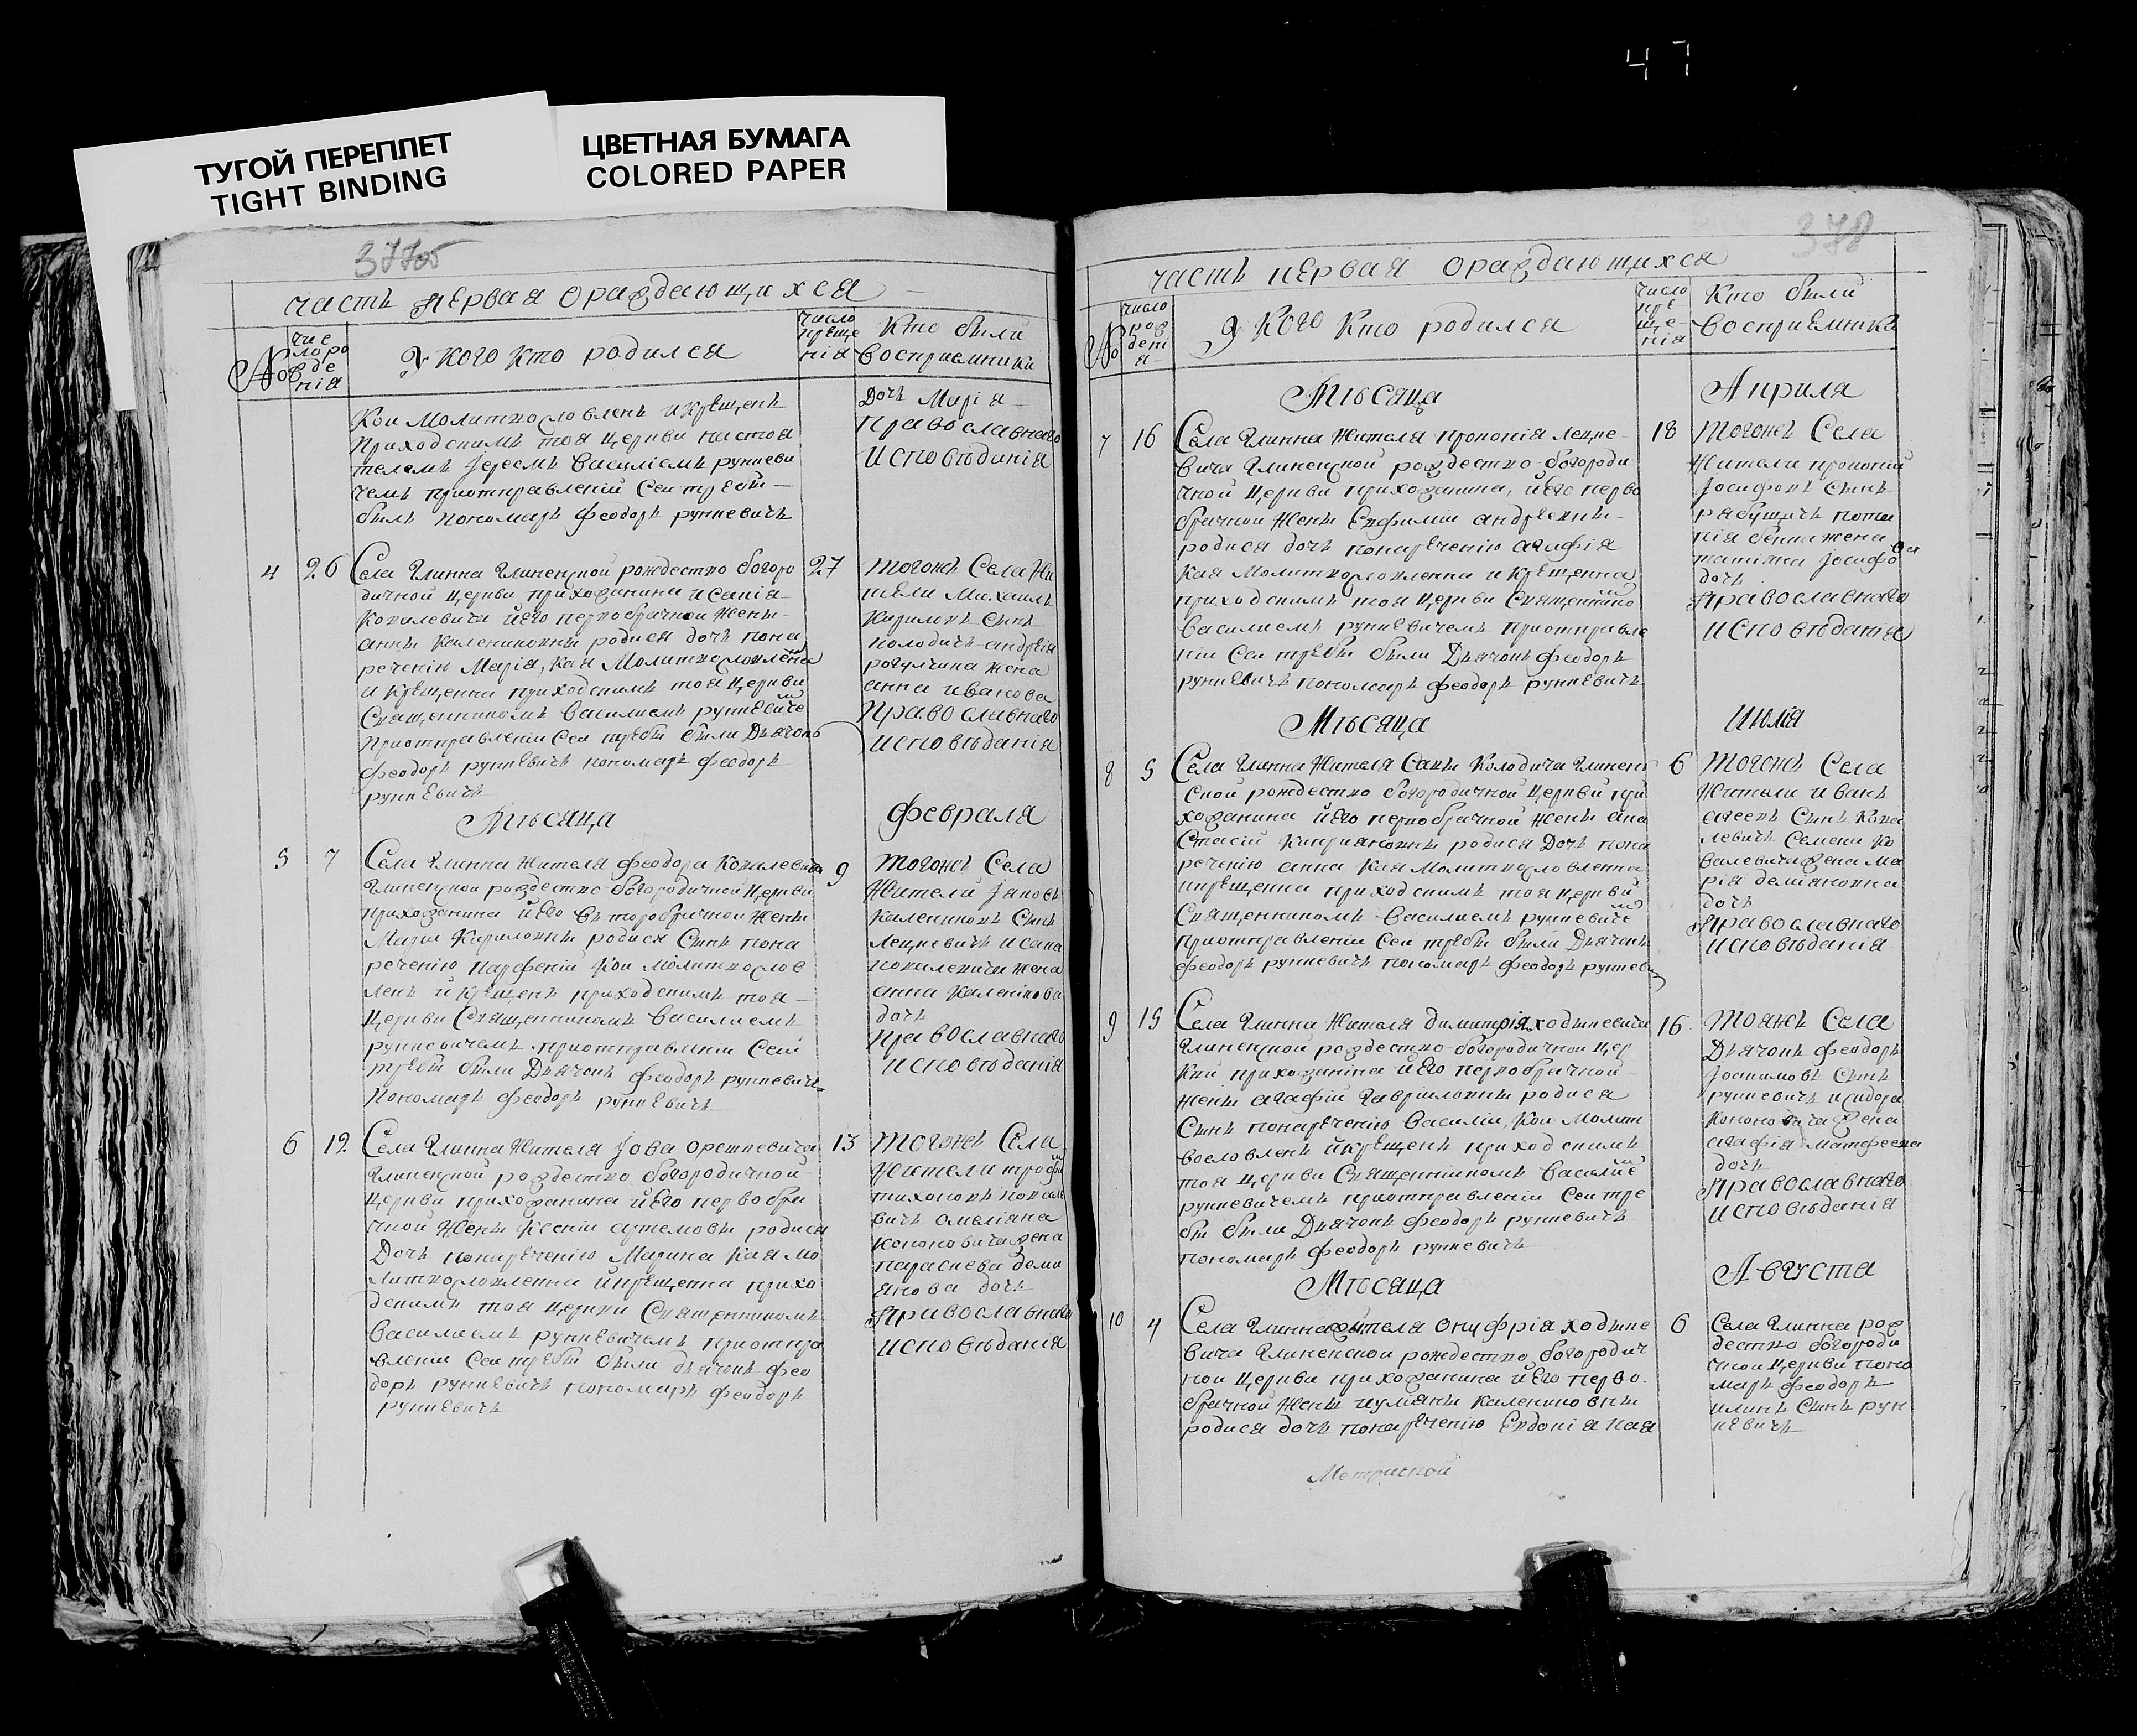 47
ТУГОЙ ПЕРЕПЛЕТ
TIGHT BINDING
ЦВЕТНАЯ БУМАГА
COLORED PAPER
377об
часть первая ораждающихся
№
чис
лоро
жде
нія
У кого кто родился
число
креще
нія
Кто были
восприемники
Кои Молитвословленъ и Крещенъ
Приходскимъ тоя Церкви настоя
телемъ Іереемъ Василіемъ рункеви
чемъ приотправленій Сеи требы
былъ пономаръ Феодоръ рункевичъ
Дочъ Марія
Православнаго
Исповѣданія
4
26
Села Глинна Глиненской рождество богоро
дичной Церкви прихожанина исакія
Ковалевича иего первобрачной Жены
анны Калениковны родися дочъ пона
реченію Марія, Кая Молитвословленна
и Крещенна приходскимъ тоя Церкви
Священникомъ Василиемъ рункевиче
Приотправленіи Сеи требы были Дьячокъ
Феодоръ рункевичъ пономаръ Феодоръ
рункевичъ
27
тогожъ Села Жи
тели Михаилъ
Кириловъ Сынъ
Колодичъ андрея
рогулчика жена
анна иванова
Православнаго
исповѣданія
Мѣсяца
Февраля
5
7
Села Глинна Жителя Феодора Ковалевича
Глиненской рождество богородичной Церкви
прихожанина иего второбрачной Жены
Маріи Кириловны родися Сынъ пона
реченію Парфеній Кои Молитвослов
ленъ и Крещенъ приходскимъ тоя
Церкви Священникомъ Василиемъ
рункевичемъ приотправленіи Сеи
требы были Дьячокъ Феодоръ рункевичъ
Пономаръ Феодоръ рункевичъ
9
тогожъ Села
Жители Іаковъ
Калениковъ Сынъ
Лецкевичъ исака
ковалевича жена
анна Каленікова
дочъ
Православнаго
исповѣданія
6
12
Села Глинна Жителя Іова орешкевича
Глиненской рождество богородичной
Церкви прихожанина иего первобра
чной Жены Ксеніи артемовы родися
Дочъ понареченію Марина Кая Мо
литвословленна икрещенна прихо
дскимъ тоя Церкви Священникомъ
Василиемъ рункевичемъ приотпра
вленіи Сеи требы были дьячокъ Фео
доръ рункевичъ пономаръ Феодоръ
рункевичъ
13
тогожъ Села
Жители трофи
тихоновъ Ковале
вичъ омеліана
Кононовича жена
параскева деми
янова дочъ
Православнаго
исповѣданія
378
часть первая ораждающихся
№
число
рож
дені
я
У Кого Кто родился
число
кре
ще
нія
Кто были
восприемники
Мѣсяца
Априля
7
16
Села Глинна Жителя прокопія Лецке
вича Глиненской рождество богороди
чной Церкви прихожанина, иего перво
брачной Жены Евфиміи андреевны
родися дочъ понареченію агафія
Кая Молитвословленна и Крещенна
приходскимъ тоя Церкви Священніко
Василиемъ рункевичемъ приотправле
ніи Сеи требы были Дьячокъ Феодоръ
рункевичъ пономаръ Феодоръ рункевичъ
18
тогожъ Села
Жители прокопій
Іосифовъ Сынъ
жена
татіяна Іосифо
ва
дочъ
Православнаго
исповѣданія
Мѣсяца
Июлія
8
5
Села Глинна Жителя Савы Колодича Глинен
ской рождество богородичной Церкви при
хожанина иего первобрачной Жены ана
стасіи Киприяновны родися Дочъ пона
реченію анна Кая Молитвословленна
икрещенна приходскимъ тоя Церкви
Священникомъ Василиемъ рункевиче
приотправленіи Сеи требы были Дьячокъ
Феодоръ рункевичъ пономаръ Феодоръ рункевич
6
тогожъ Села
Жители иванъ
Сынъ Кова
левичъ Семена Ко
валевича жена Ма
рія деміяновна
дочъ
Православнаго
исповѣданія
9
15
Села Глинна Жителя димитрія ходыневича
Глиненской рождество богородичной Цер
кви прихожаніна иего первобрачной
жены агафіи Гавриловны родися
Сынъ понареченію Василіи, Кои Молит
вословленъ икрещенъ приходскимъ
тоя Церкви Священнікомъ Василие
рункевичемъ приотправленіи Сеи тре
бы были Дьячокъ Феодоръ рункевичъ
пономаръ Феодоръ рункевичъ
16
тояжъ Села
Дьячокъ Феодоръ
Іоакимовъ Сынъ
рункевичъ исидора
Кононовича жена
агафія матфеева
дочъ
Православнаго
исповѣданія
Мѣсяца
Августа
10
4
Села Глинна жителя онуфрія ходыне
вича Глиненской рождество богородич
нои Церкви прихожанина иего перво
брачной Жены иуліаны Калениковны
родися дочъ понареченію Евдокія кая
6
Села Глинна рож
дество богороди
чнои Церкви поно
маръ Феодоръ
илиинъ Сынъ рун
кевичъ